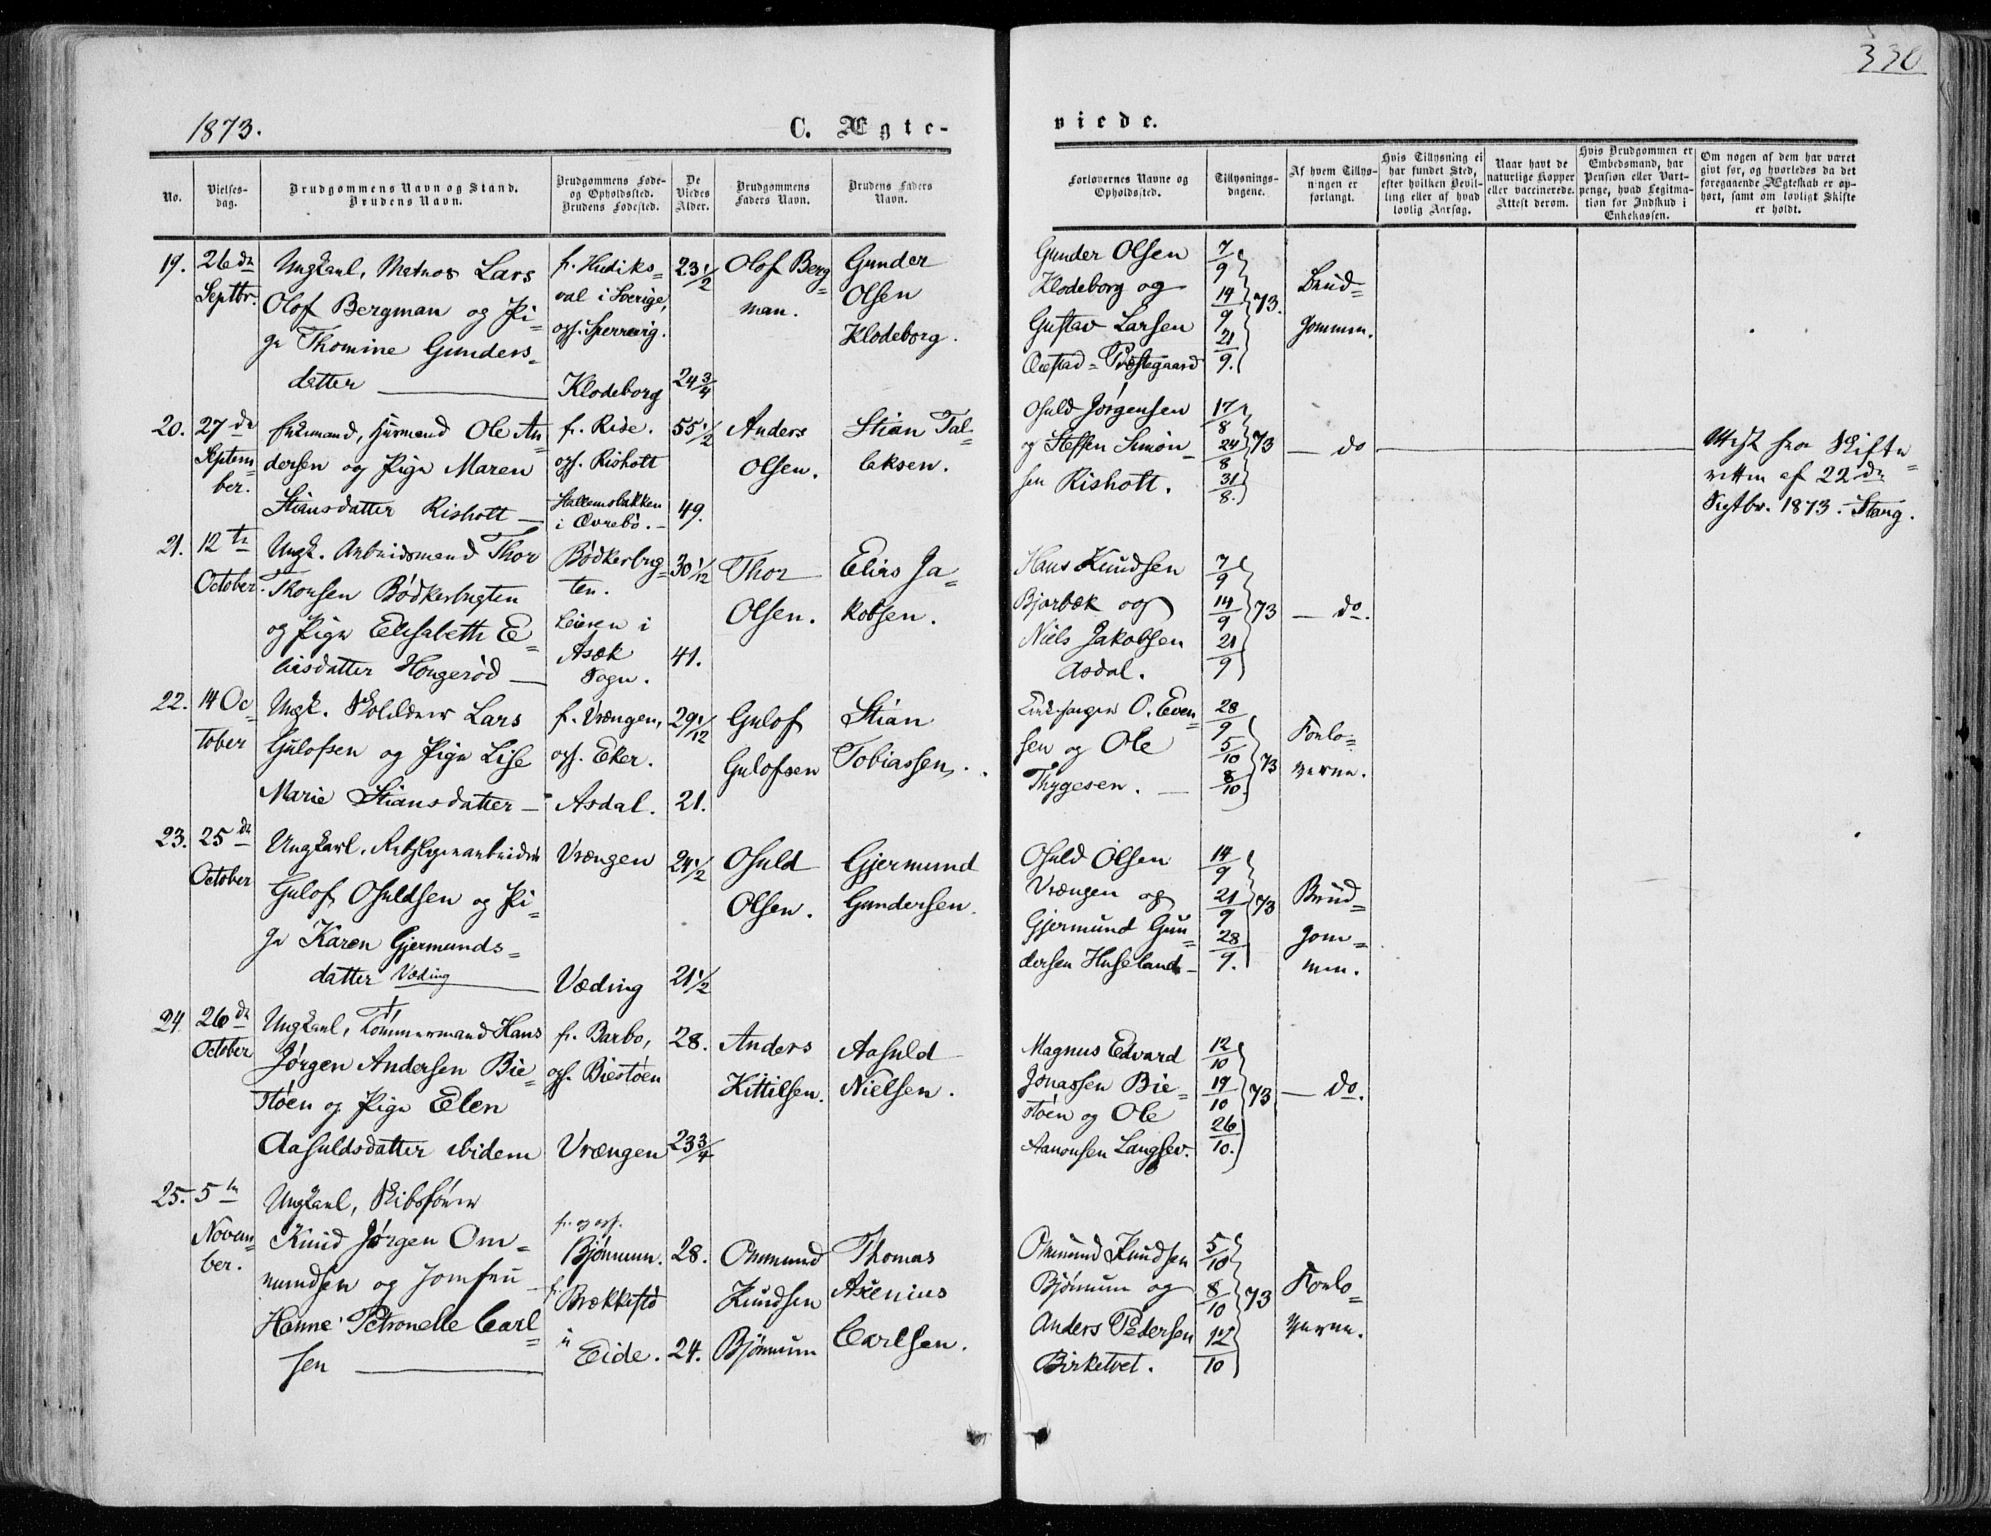 330
1873.
C. Ægte-
viede.
No.
Vielses-
dag.
Brudgommens Navn og Stand.
Brudens Navn.
Brudgommens Føde-
og Opholdssted.
Brudens Fødested.
De
Viedes
Alder.
Brudgommens
Faders Navn.
Brudens Faders
Navn.
Forlovernes Navne og
Opholdssted.
Tillysnings-
dagene.
Af hvem Tillys-
ningen er
forlangt.
Hvis Tillysning ei
har fundet Sted,
efter hvilken Bevil-
ling eller af hvad
lovlig Aarsag.
Naar havt de
naturlige Kopper
eller vaccinerede.
Attest derom.
Hvis Brudgommen er
Embedsmand, har
Pension eller Vart-
penge, hvad Legitma-
tion for Indskud i
Enkekassen.
Om nogen af dem har været
givt før, og hvorledes da det
foregaaende Ægteskab er op-
hørt, samt om lovligt Skifte
er holdt.
19.
26de
Septbr.
Ungkarl, Matros Lars
Olof Bergman og Pi-
ge Thomine Gunders-
datter
f. Hudiks-
val i Sverige,
oph. Sperrevig.
Klodeborg
23 1/2
24 3/4
Olof Berg-
man.
Gunder
Olsen
Klodeborg.
Gunder Olsen
Klodeborg og
Gustav Larsen
Oiestad-Præstegaard
7/9
14/9
21/9.
73.
Brud-
gommen.
20.
27de
Septem-
ber.
Enkemand, Huusmand Ole An-
dersen og Pige Maren
Stiansdatter Risholt
f. Rise.
oph. Risholt
i Øvrebø.
55 1/2
49.
Anders
Olsen.
Stian Tal-
leksen.
Osuld Jørgensen
og Steffen Simon-
sen Risholt.
17/8
24/8
31/8.
73
do
Attest fra Skifte-
retten af 22de
Septbr. 1873. Stang.
21.
12te
October.
Ungk. Arbeidsmand Thor
Thorsen Bödkerbugten
og Pige Elisabeth E-
liasdatter Hongerød
Bödkerbug-
ten.
Leiren i
Asæk
Sogn.
30 1/12
41.
Thor
Olsen.
Elias Ja-
kobsen.
Hans Knudsen
Bjorbæk og
Niels Jakobsen
Asdal.
7/9
14/9
21/9
73
do.
22.
14 Oc-
tober
Ungk. Lars
Gulofsen og Pige Lise
Marie Stiansdatter
f. Vrængen,
oph. Eker.
Asdal.
29 1/12
21.
Gulof
Gulofsen
Stian
Tobiassen.
Kirkesanger O. Even-
sen og Ole
Thygesen.
28/9
5/10
8/10.
73
Forlo-
verne.
23.
25de
October
Ungkarl,
Gulof Osuldsen og Pi-
ge Karen Gjermunds-
datter Væding
Vrængen
Væding
24 1/2
21 1/2
Osuld
Olsen.
Gjermund
Gundersen.
Osuld Olsen
Vrængen og
Gjermund Gun-
dersen Huseland
14/9
21/9
28/9.
73
Brud-
gom-
men.
24
26de
October
Ungkarl, Tömmermand Hans
Jörgen Andersen Bie-
stöen og Pige Elen
Aasuldsdatter ibidem
f. Barbo,
oph. Biestöen
Vrængen
28.
23 3/4
Anders
Kittilsen.
Aasuld
Nielsen.
Magnus Edvard
Jonassen Bie-
stöen og Ole
Aanonsen Langsev.
12/10
19/10
26/10.
73
do.
25.
5te
Novem-
ber.
Ungkarl, Skibsförer
Knud Jörgen Om-
mundsen og Jomfru
Hanne Petronelle Carl-
sen
f. og oph.
Bjönnum.
f. Brækkestö
i Eide.
28.
24.
Ommund
Knudsen
Bjönnum
Thomas
Axenius
Carlsen.
Ommund Knudsen
Bjönnum og
Anders Pedersen
Birketvet.
5/10
8/10
12/10
73
Forlo-
verne.